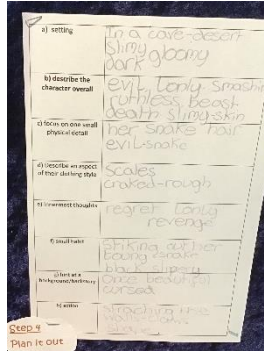 a) setting
In a cave-desert
slimy gloomy
dark
b) describe the
character overall
evil, Lonly smashi
ruthless, beast
death slimy-skin
c) focus on one small
physical detail
her snake hair
evil-snake
d) Describe an aspect
of their clothing style
scales
craked-rough
e) Innermost thoughts
regret Lonly
revenge
f) small habit
striking out her
toung snake
black slipery
g) hint at a
background/backstory
Once beautiful
cursed
h) action
the
Step 4
Plan it out